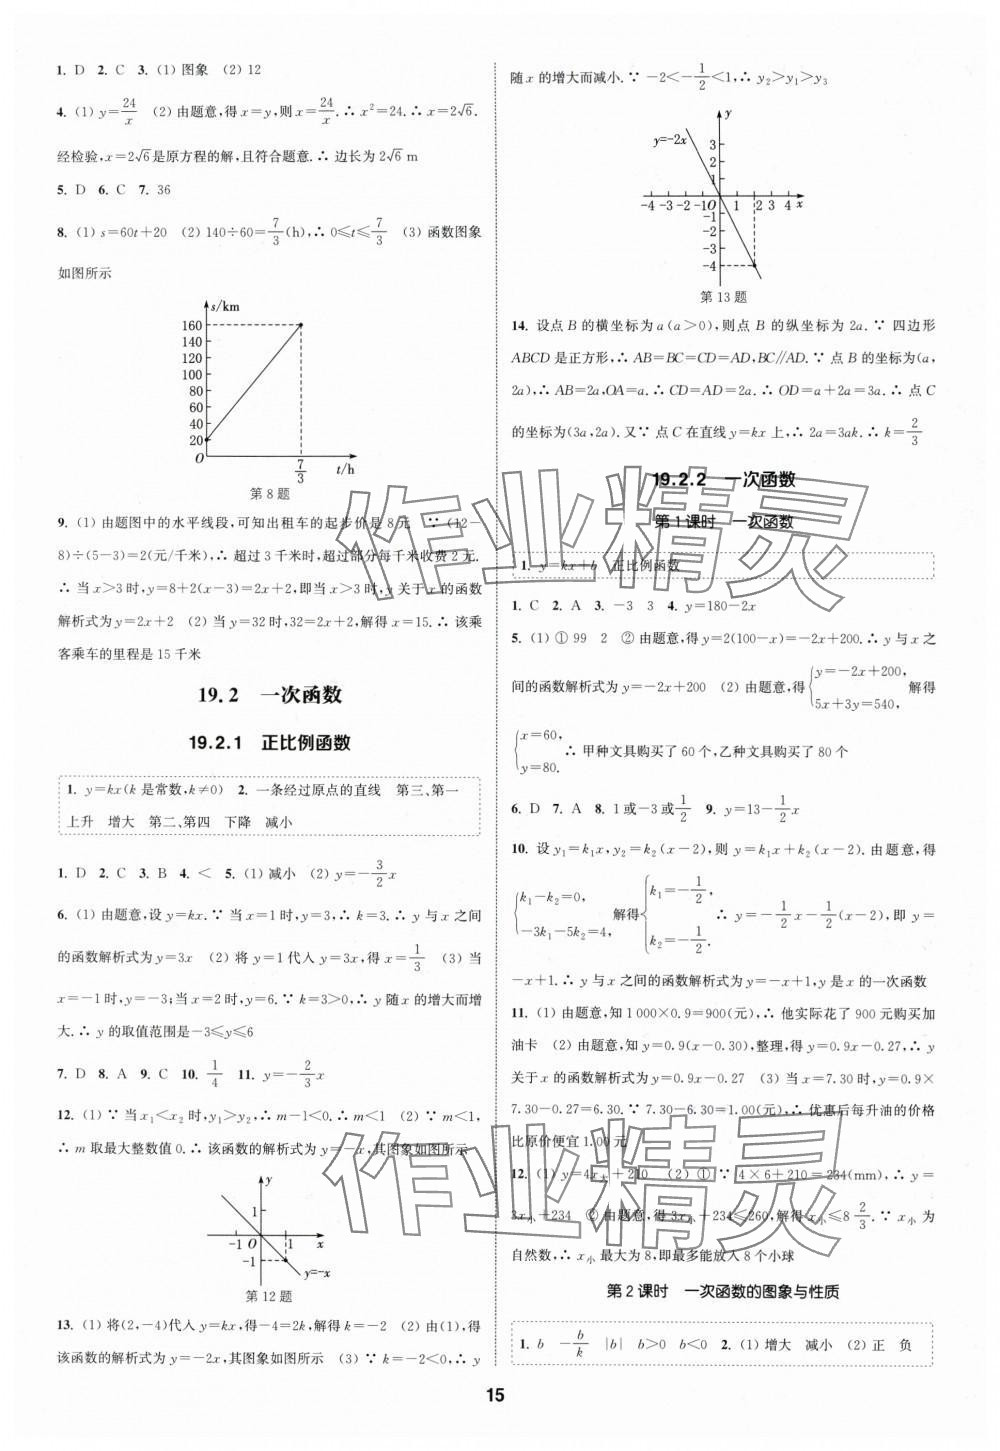 1. D 2. C 3. (1) 图象 (2) 12
4. (1) y=24/x (2) 由题意,得 x=y,则 x=24/x.∴ x²=24.∴ x=2√6.
经检验,x=2√6是原方程的解,且符合题意.∴ 边长为 2√6 m
5. D 6. C 7. 36
8. (1) s=60t+20 (2) 140÷60=7/3(h),∴ 0≤t≤7/3 (3) 函数图象
如图所示
s/km
160
140
120
100
80
60
40
20
O 7/3 t/h
第 8 题
9. (1) 由题图中的水平线段,可知出租车的起步价是 8 元 ∵ (12-
8)÷(5-3)=2(元/千米),∴ 超过 3 千米时,超过部分每千米收费 2 元.
∴ 当 x>3 时,y=8+2(x-3)=2x+2,即当 x>3 时,y 关于 x 的函数
解析式为 y=2x+2 (2) 当 y=32 时,32=2x+2,解得 x=15.∴ 该乘
客乘车的里程是 15 千米
19.2 一次函数
19.2.1 正比例函数
1. y=kx(k 是常数,k≠0) 2. 一条经过原点的直线 第三、第一
上升 增大 第二、第四 下降 减小
1. D 2. C 3. B 4. < 5. (1) 减小 (2) y=-3/2x
6. (1) 由题意,设 y=kx.∵ 当 x=1 时,y=3,∴ k=3.∴ y 与 x 之间
的函数解析式为 y=3x (2) 将 y=1 代入 y=3x,得 x=1/3 (3) 当
x=-1 时,y=-3;当 x=2 时,y=6.∵ k=3>0,∴ y 随 x 的增大而增
大.∴ y 的取值范围是-3≤y≤6
7. D 8. A 9. C 10. 1/4 11. y=-2/3x
12. (1) ∵ 当 x₁<x₂ 时,y₁>y₂,∴ m-1<0.∴ m<1 (2) ∵ m<1,
∴ m 取最大整数值 0.∴ 该函数的解析式为 y=-x,其图象如图所示
y
1
-1 O 1 x
-1
y=-x
第 12 题
13. (1) 将(2,-4)代入 y=kx,得-4=2k,解得 k=-2 (2) 由(1),得
该函数的解析式为 y=-2x,其图象如图所示 (3) ∵ k=-2<0,∴ y
随 x 的增大而减小.∵ -2<-1/2<1,∴ y₂>y₁>y₃
y
y=-2x
3
2
1
-4 -3 -2 -1 O 1 2 3 4 x
-1
-2
-3
-4
第 13 题
14. 设点 B 的横坐标为 a(a>0),则点 B 的纵坐标为 2a.∵ 四边形
ABCD 是正方形,∴ AB=BC=CD=AD,BC∥AD.∵ 点 B 的坐标为(a,
2a),∴ AB=2a,OA=a.∴ CD=AD=2a.∴ OD=a+2a=3a.∴ 点 C
的坐标为(3a,2a).又∵ 点 C 在直线 y=kx 上,∴ 2a=3ak.∴ k=2/3
19.2.2 一次函数
第 1 课时 一次函数
1. y=kx+b 正比例函数
1. C 2. A 3. -3 3 4. y=180-2x
5. (1) ① 99 2 ② 由题意,得 y=2(100-x)=-2x+200.∴ y 与 x 之
间的函数解析式为 y=-2x+200 (2) 由题意,得{y=-2x+200, 5x+3y=540, 解得
{x=60, y=80. ∴ 甲种文具购买了 60 个,乙种文具购买了 80 个
6. D 7. A 8. 1 或-3 或1/2 9. y=13-1/2x
10. 设 y₁=k₁x,y₂=k₂(x-2),则 y=k₁x+k₂(x-2).由题意,得
{k₁-k₂=0, -3k₁-5k₂=4, 解得{k₁=-1/2, k₂=-1/2. ∴ y=-1/2x-1/2(x-2),即 y=
-x+1.∴ y 与 x 之间的函数解析式为 y=-x+1,y 是 x 的一次函数
11. (1) 由题意,知 1 000×0.9=900(元),∴ 他实际花了 900 元购买加
油卡 (2) 由题意,知 y=0.9(x-0.30),整理,得 y=0.9x-0.27,∴ y
关于 x 的函数解析式为 y=0.9x-0.27 (3) 当 x=7.30 时,y=0.9×
7.30-0.27=6.30.∵ 7.30-6.30=1.00(元),∴ 优惠后每升油的价格
比原价便宜 1.00 元
12. (1) y=4x大+210 (2) ① ∵ 4×6+210=234(mm),∴ y=
3x小+234 ② 由题意,得 3x小+234≤260,解得 x小≤8 2/3.∵ x小 为
自然数,∴ x小 最大为 8,即最多能放入 8 个小球
第 2 课时 一次函数的图象与性质
1. b -b/k |b| b>0 b<0 2. (1) 增大 减小 (2) 正 负
15
作业精灵
作业精灵